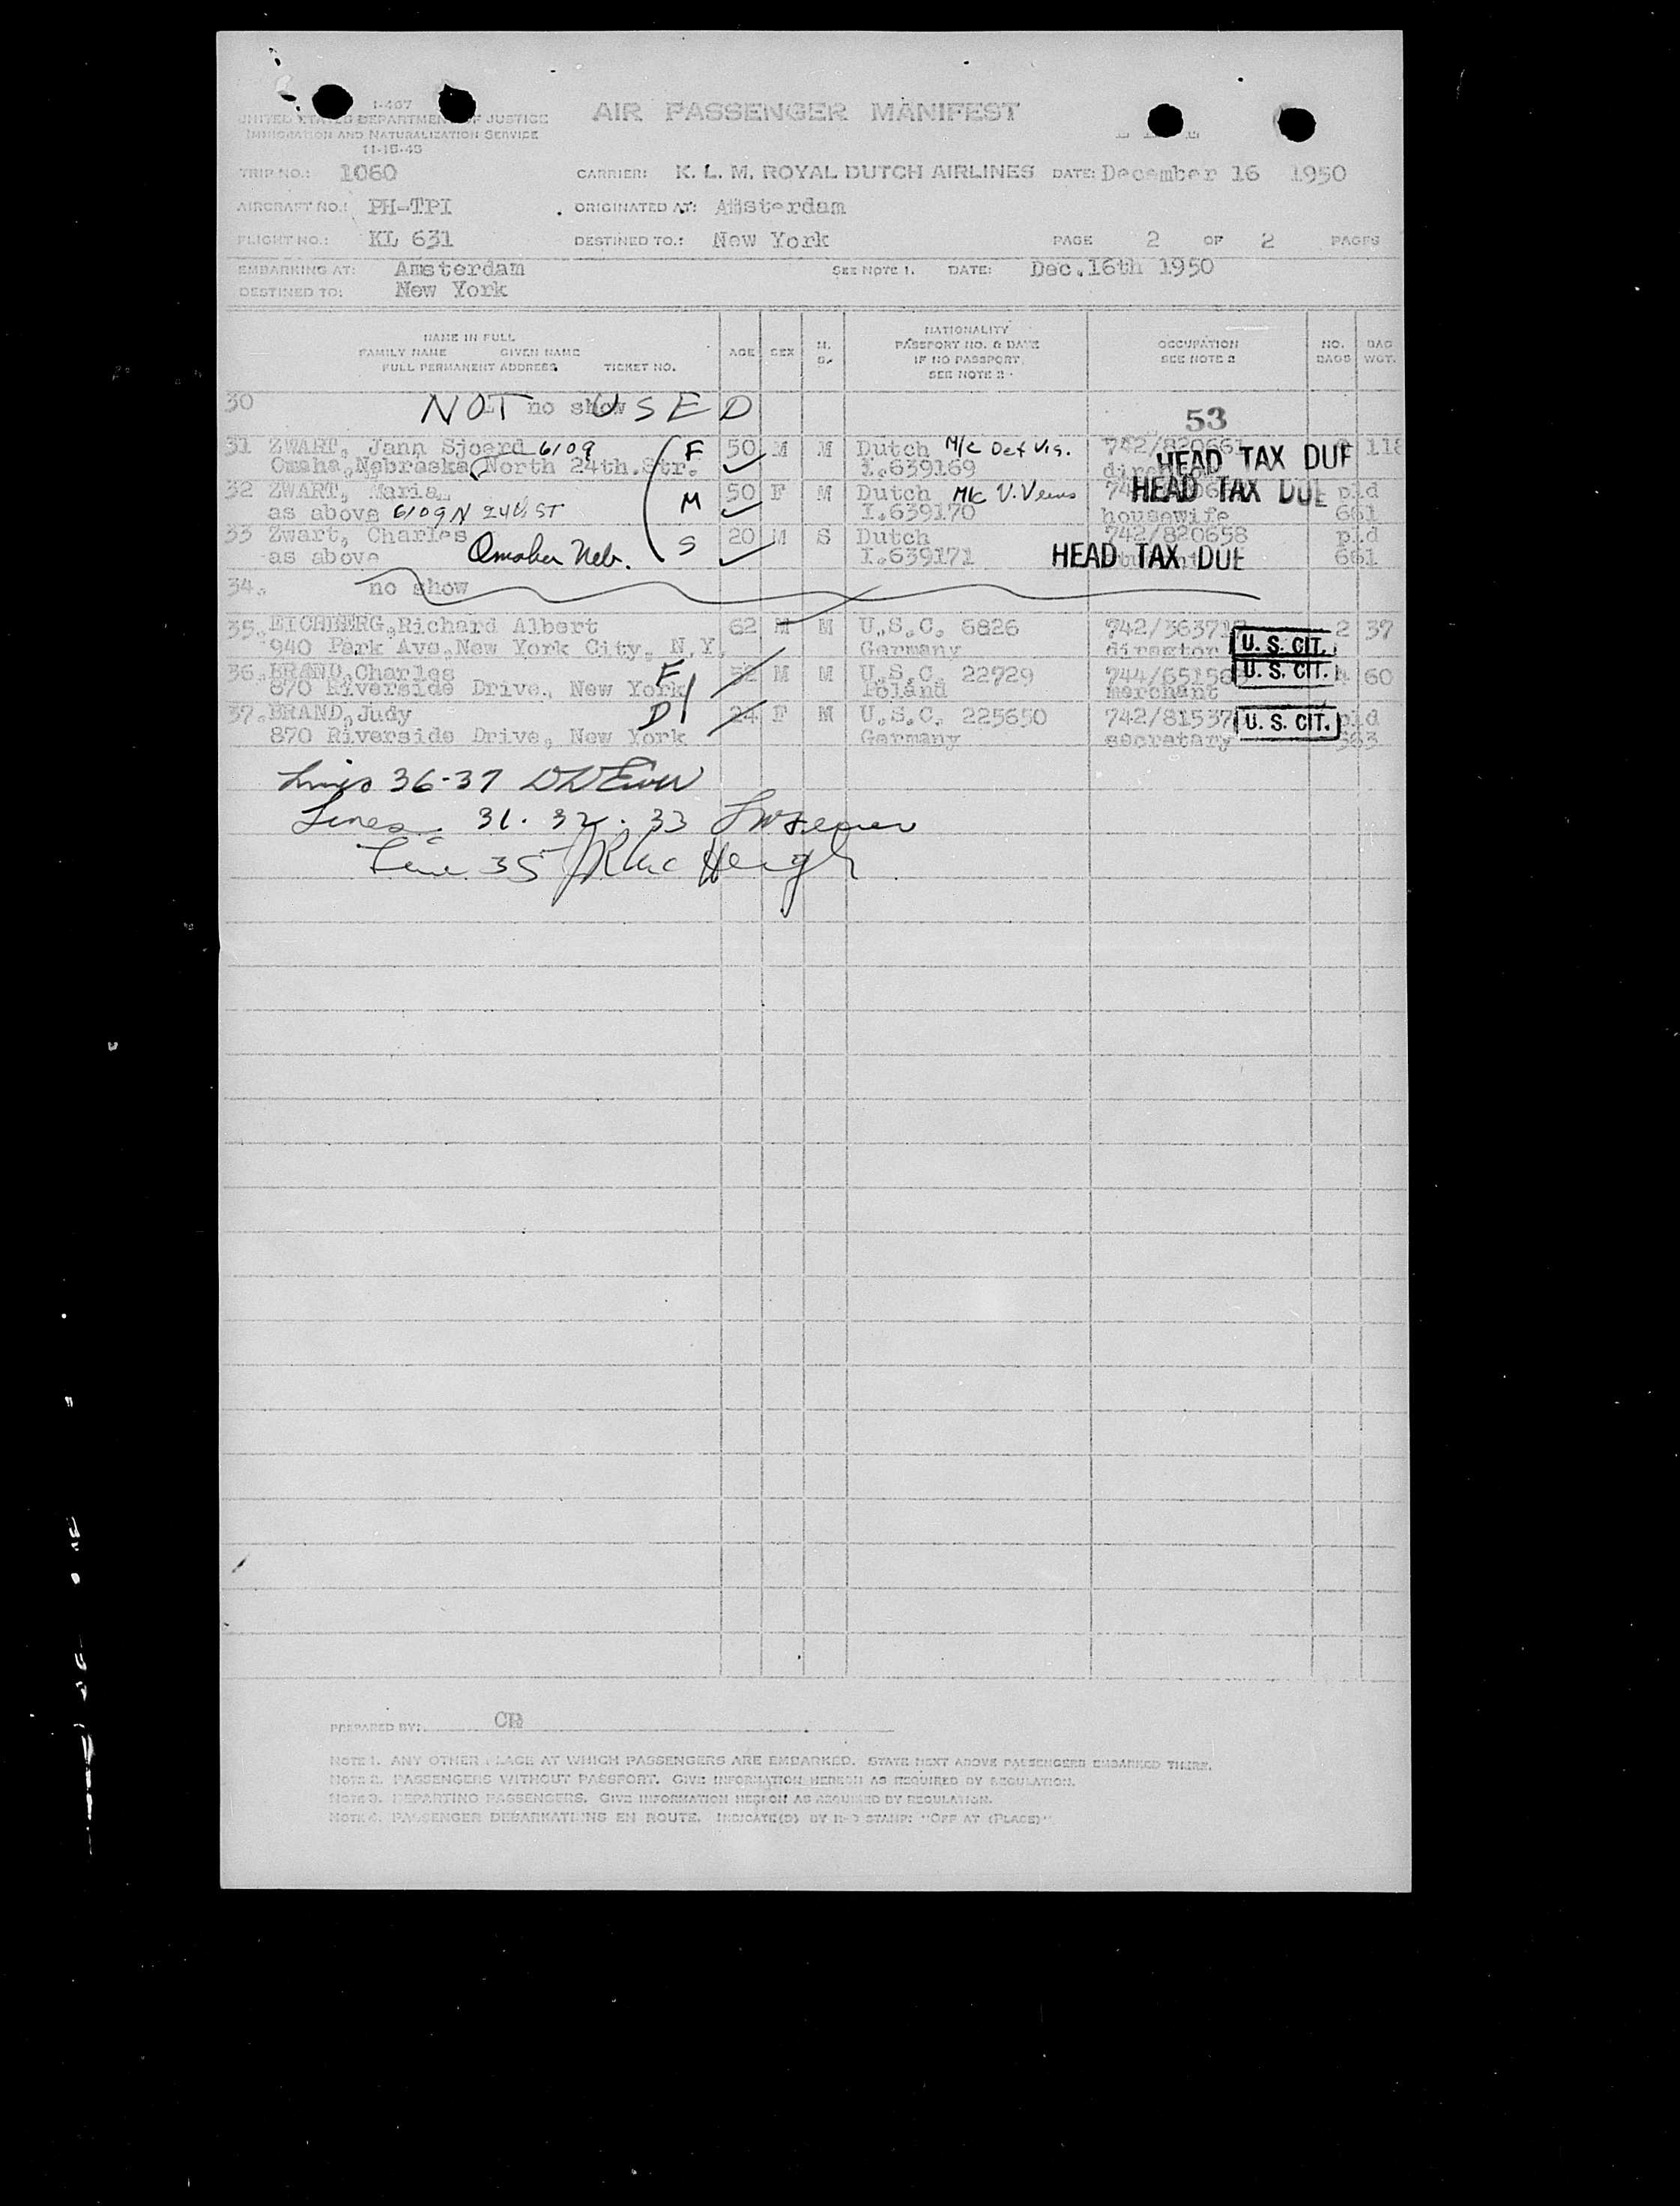 I-467
UNITED STATES DEPARTMENT OF JUSTICE
IMMIGRATION AND NATURALIZATION SERVICE
11-15-45
AIR PASSENGER MANIFEST
TRIP NO.: 1060 CARRIER: K. L. M. ROYAL DUTCH AIRLINES DATE: December 16 1950
AIRCRAFT NO.: PH-TPI ORIGINATED AT: Amsterdam
FLIGHT NO.: KL 631 DESTINED TO.: New York PAGE 2 OF 2 PAGES
EMBARKING AT: Amsterdam SEE NOTE 1. DATE: Dec.16th 1950
DESTINED TO: New York
NAME IN FULL
FAMILY NAME GIVEN NAME
FULL PERMANENT ADDRESS TICKET NO.
AGE SEX M. S.
NATIONALITY
PASSPORT NO. & DATE
IF NO PASSPORT,
SEE NOTE 2
OCCUPATION
SEE NOTE 2
NO. BAGS
BAG WGT.
30 no show NOT USED
53
31 ZWART, Jann Sjoerd 6109 F 50 M M Dutch M/c Def Vis. 742/820661 118
Omaha, Nebraska (North 24th.Str. I.639169 HEAD TAX DUE
32 ZWART, Maria M 50 F M Dutch HEAD TAX DUE p.d
as above 6109 N 24th ST I.639170 housewife 661
33 Zwart, Charles S 20 M S Dutch 742/820658 p.d
as above Omaha Neb. I.639171 HEAD TAX DUE 661
34. no show
35. EICHBERG, Richard Albert 62 M M U.S.C. 6826 2 37
940 Park Ave., New York City, N.Y. Germany director U. S. CIT.
36. BRAND, Charles F 52 M M U.S.C. 22729 60
870 Riverside Drive., New York Poland merchant U. S. CIT.
37. BRAND, Judy D 24 F M U.S.C. 225650 U. S. CIT. p.d
870 Riverside Drive, New York Germany secretary 563
Lines 36-37
Lines 31. 32. 33
Line 35
PREPARED BY: CB
NOTE 1. ANY OTHER PLACE AT WHICH PASSENGERS ARE EMBARKED. STATE NEXT ABOVE PASSENGERS EMBARKED THERE.
NOTE 2. PASSENGERS WITHOUT PASSPORT. GIVE INFORMATION HEREON AS REQUIRED BY REGULATION.
NOTE 3. DEPARTING PASSENGERS. GIVE INFORMATION HEREON AS REQUIRED BY REGULATION.
NOTE 4. PASSENGER DEBARKATIONS EN ROUTE. INDICATE(D) BY STAMP: "OFF AT (PLACE)"